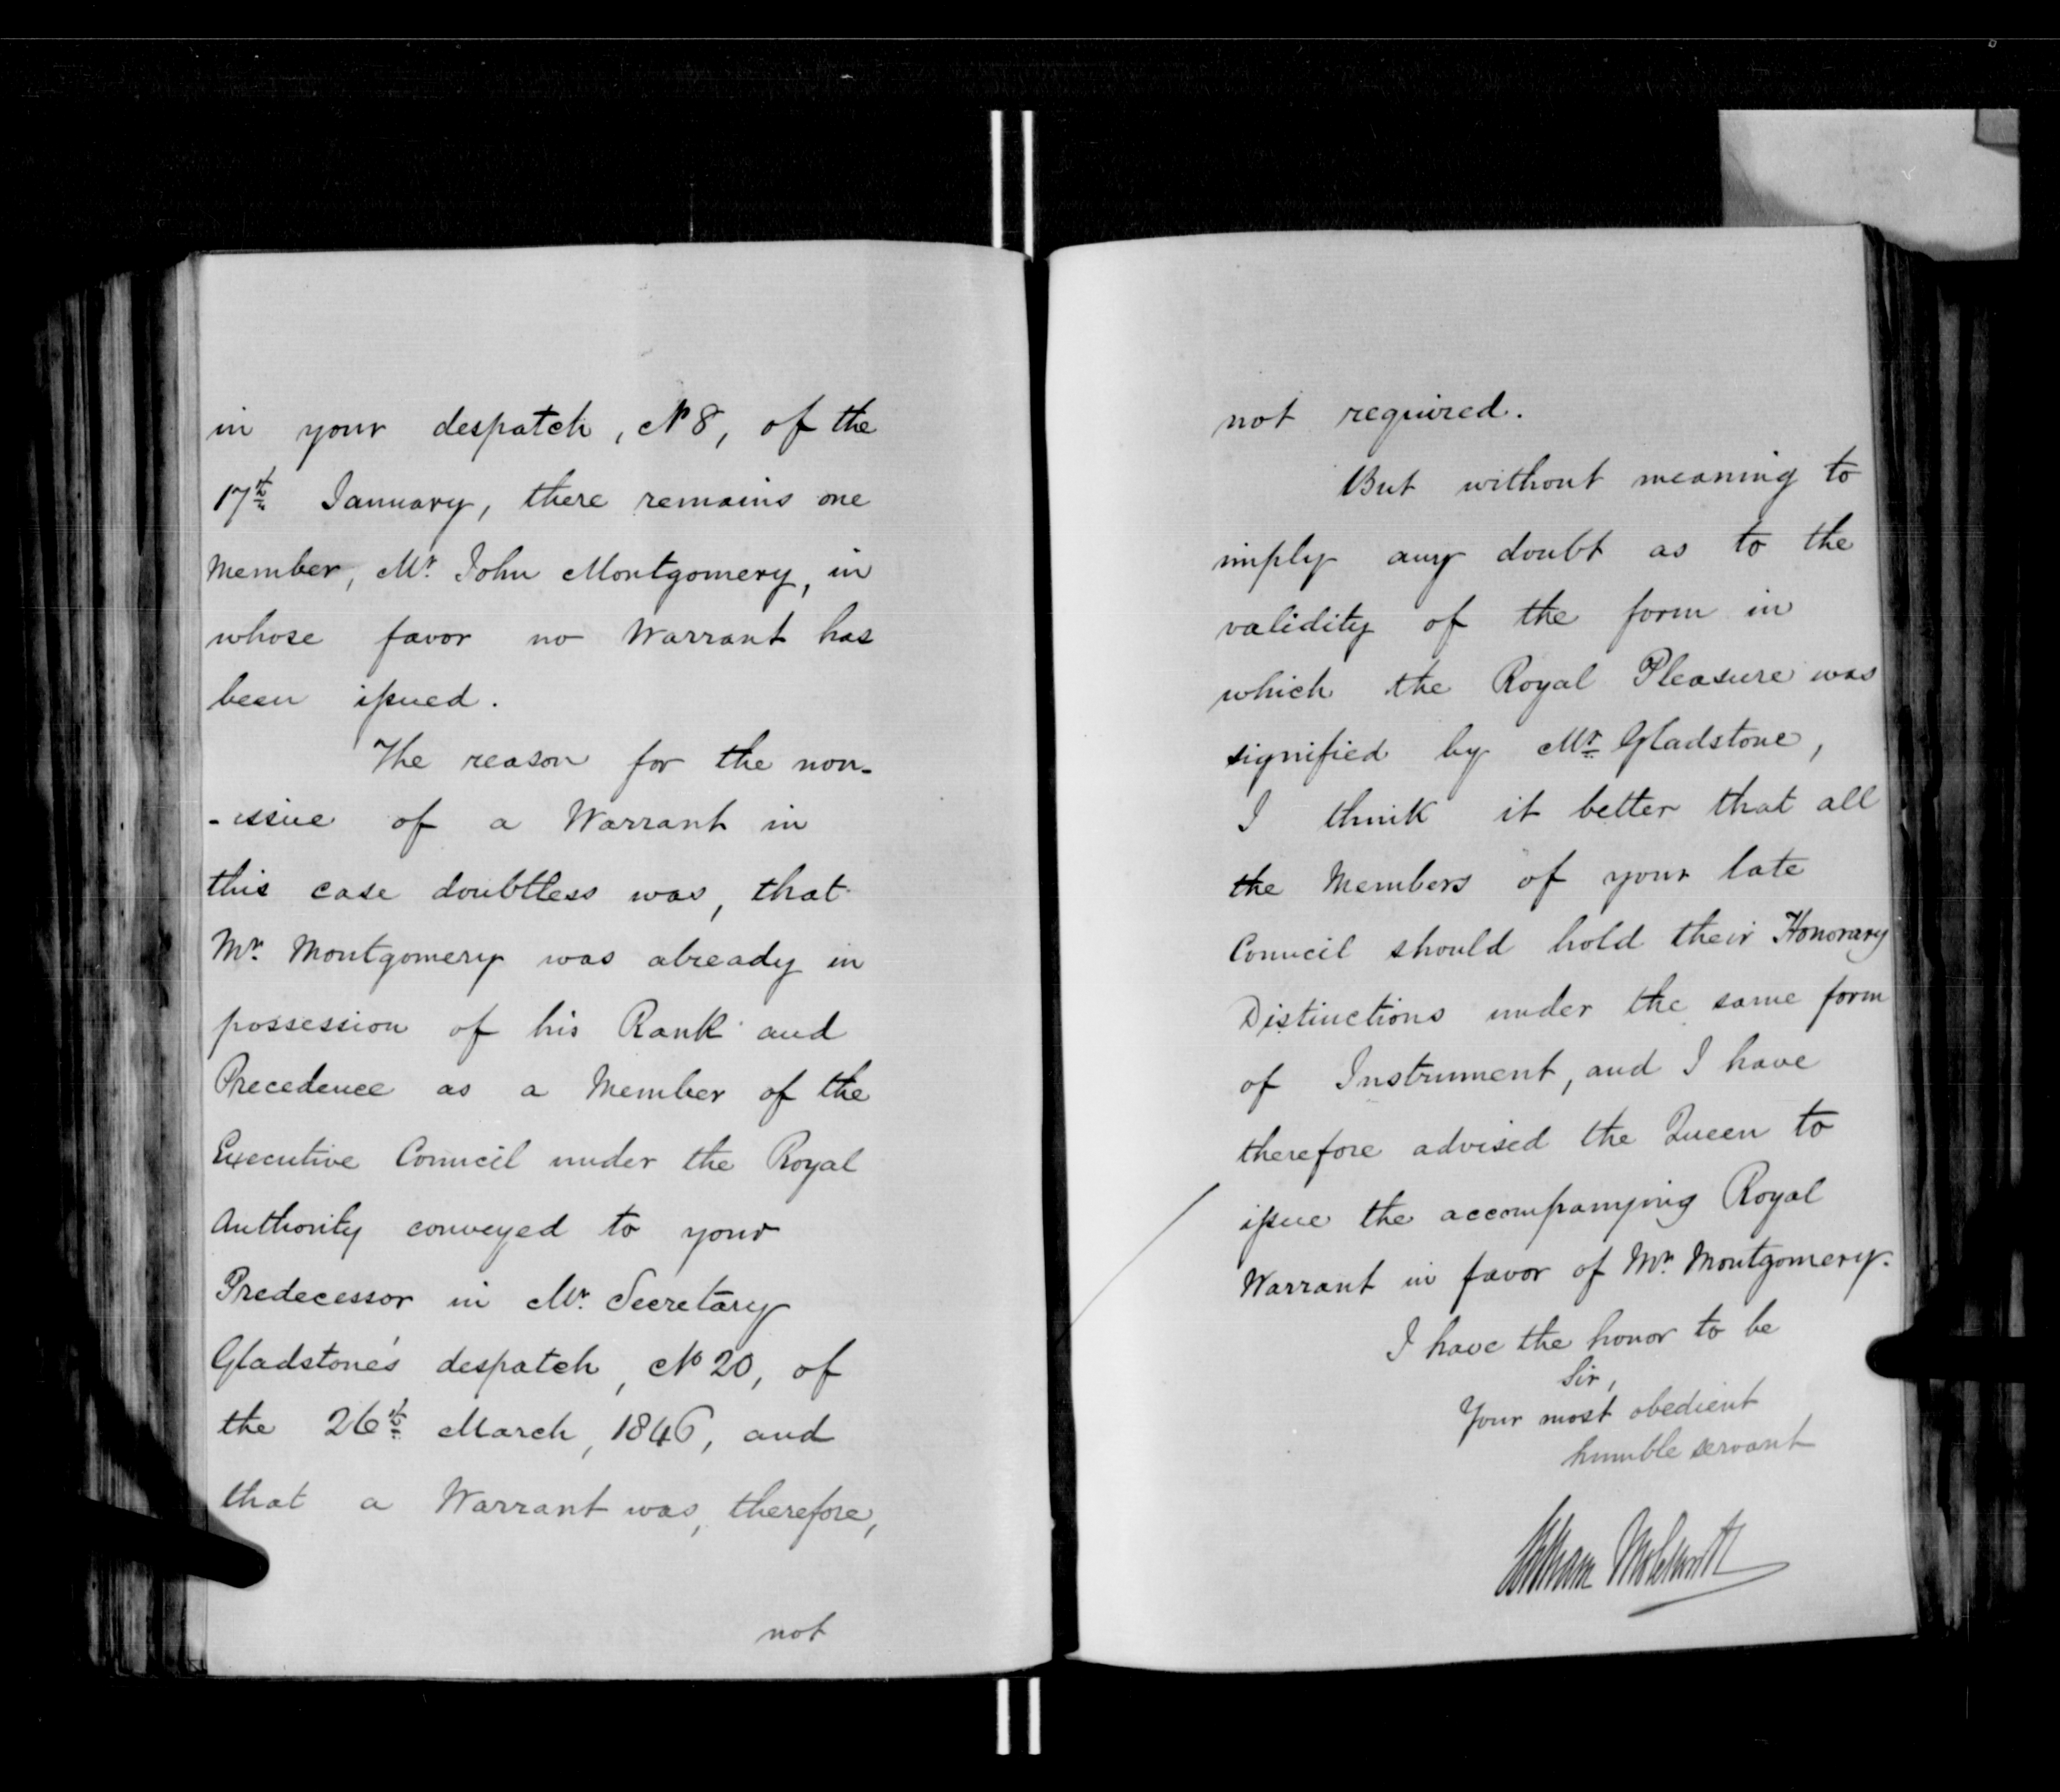 in your despatch, No 8, of the
17th January, there remains one
Member, Mr. John Montgomery, in
whose favor no Warrant has
been issued.
The reason for the non-
-issue of a Warrant in
this case doubtless was, that
Mr. Montgomery was already in
possession of his Rank and
Precedence as a Member of the
Executive Council under the Royal
Authority conveyed to your
Predecessor in Mr. Secretary
Gladstone's despatch, No 20, of
the 26th March, 1846, and
that a Warrant was, therefore,
not
not required.
But without meaning to
imply any doubt as to the
validity of the form in
which the Royal Pleasure was
signified by Mr Gladstone,
I think it better that all
the Members of your late
Council should hold their Honorary
Distinctions under the same form
of Instrument, and I have
therefore advised the Queen to
issue the accompanying Royal
Warrant in favor of Mr. Montgomery.
I have the honor to be
Sir,
Your most obedient
humble servant
William Molesworth